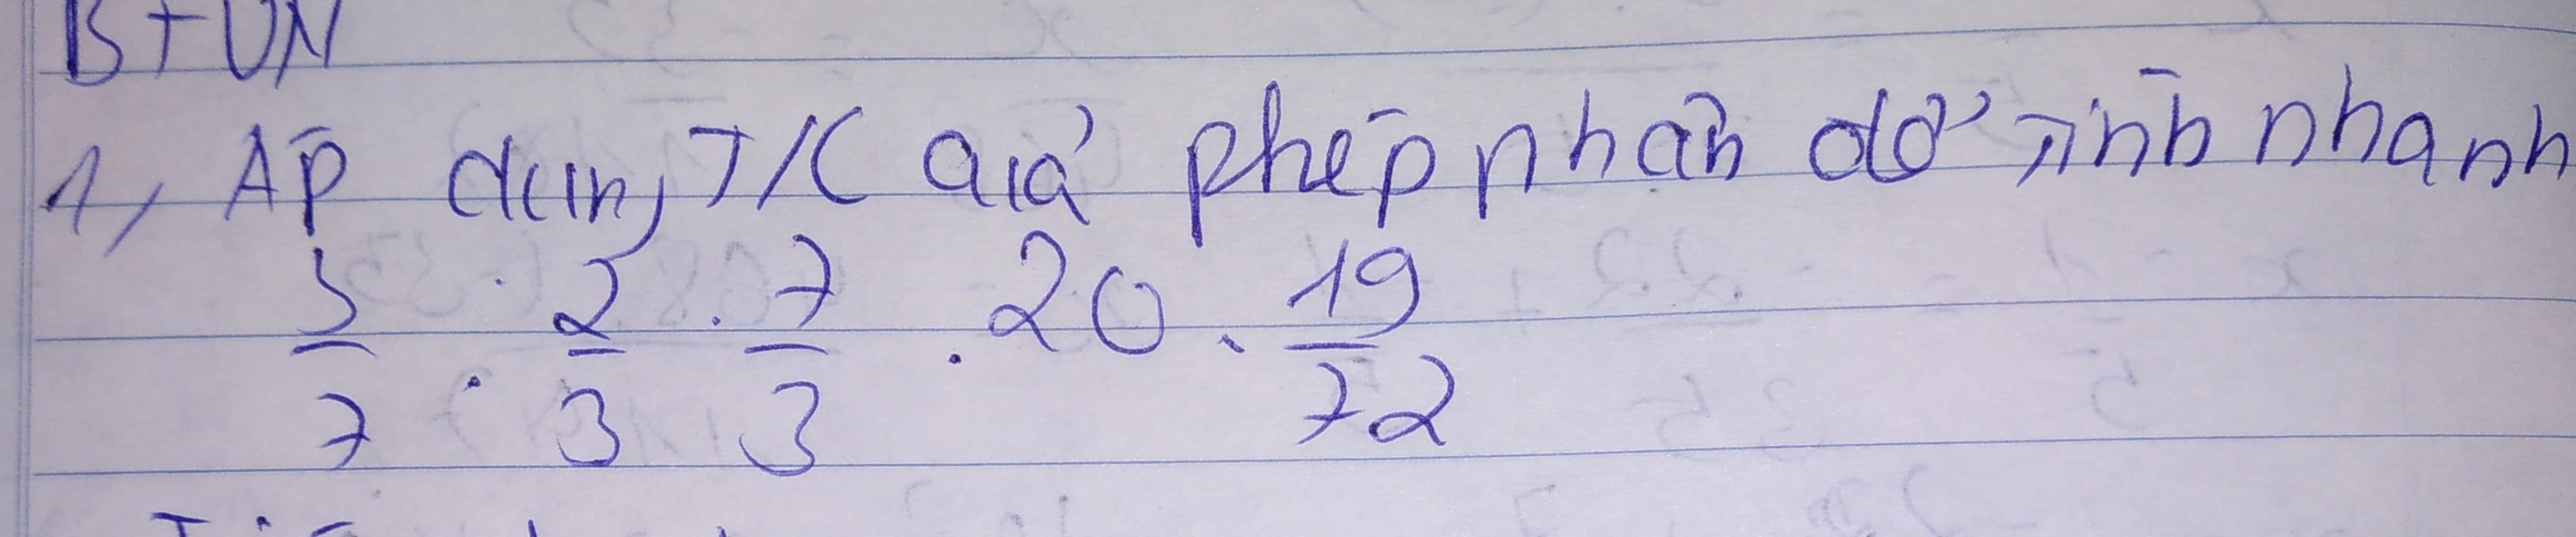 BTVN
1, Áp dụng T/C của phép nhân để tính nhanh
5/7 . 2/3 . 7/3 . 20 . 19/72